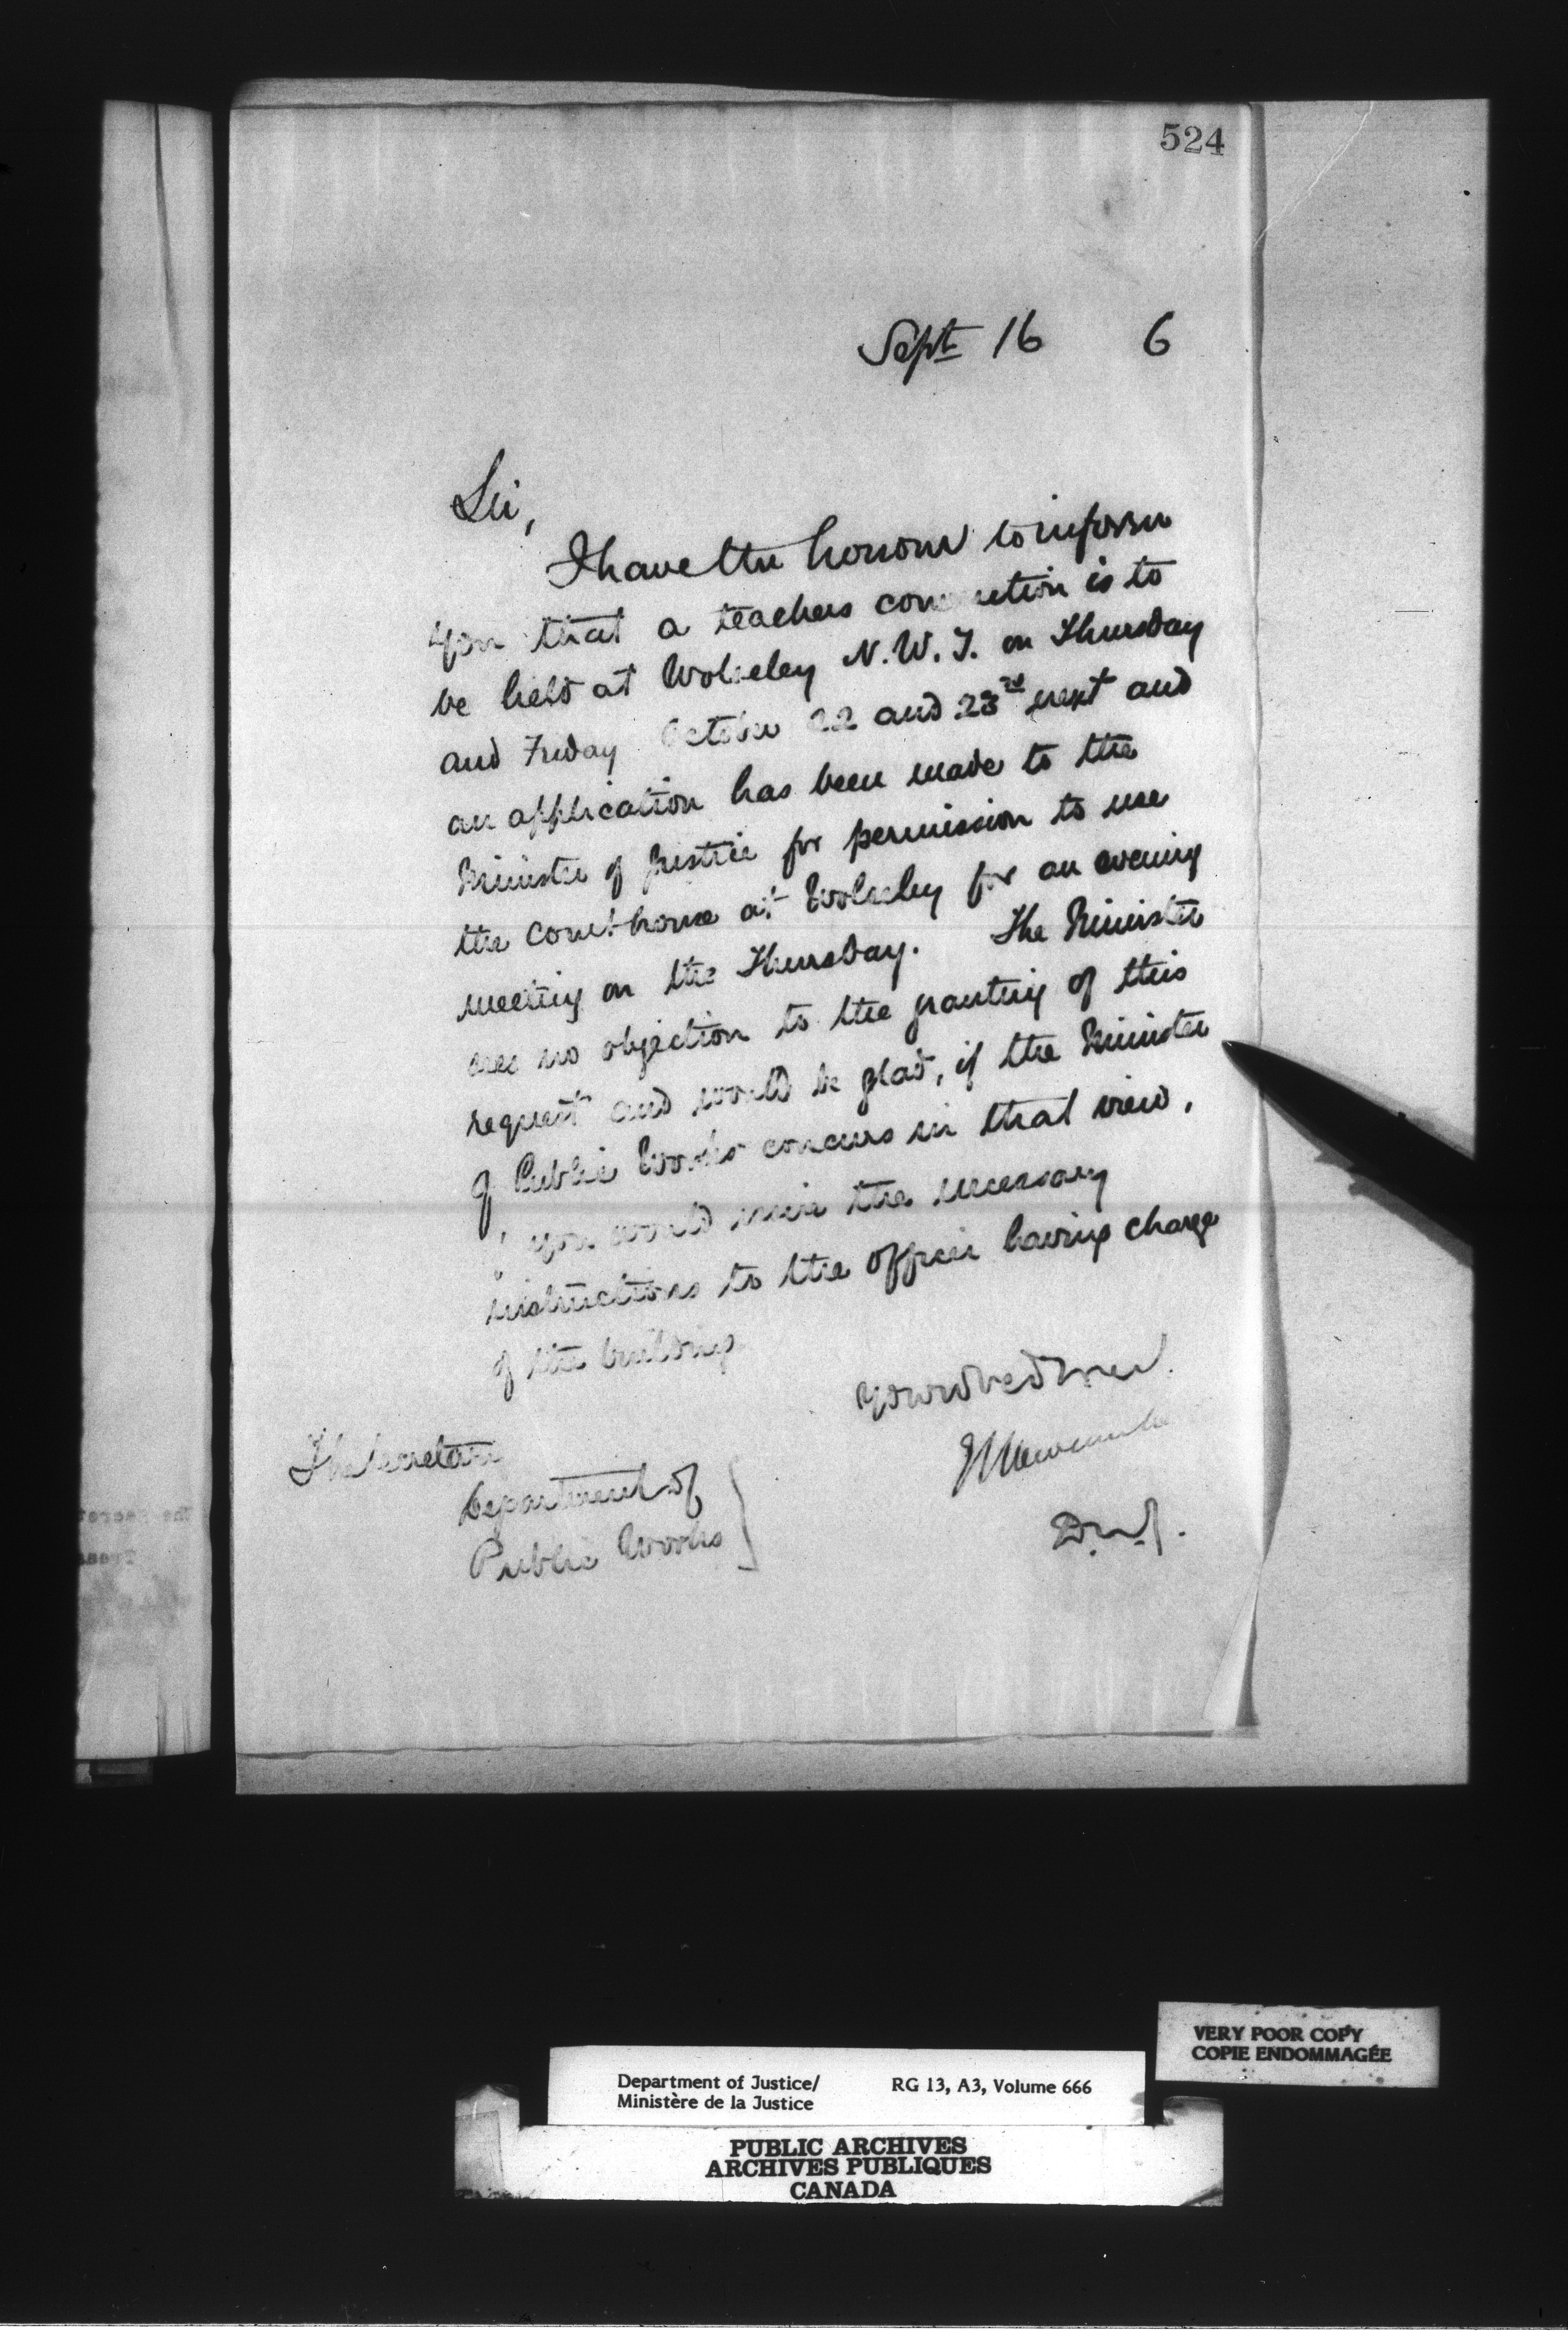 524
Sept 16 6
Sir,
I have the honour to inform
you that a teachers convention is to
be held at Wolseley N.W.T. on Thursday
and Friday October 22 and 23rd next and
an application has been made to the
Minister of Justice for permission to use
the court-house at Wolseley for an evening
meeting on the Thursday. The Minister
sees no objection to the granting of this
request and would be glad, if the Minister
of Public Works concurs in that view,
if you would issue the necessary
instructions to the officer having charge
of the building
Your obed
E L Newcombe
D.M.J.
The Secretary
Department of
Public Works
VERY POOR COPY
COPIE ENDOMMAGÉE
Department of Justice/ RG 13, A3, Volume 666
Ministère de la Justice
PUBLIC ARCHIVES
ARCHIVES PUBLIQUES
CANADA